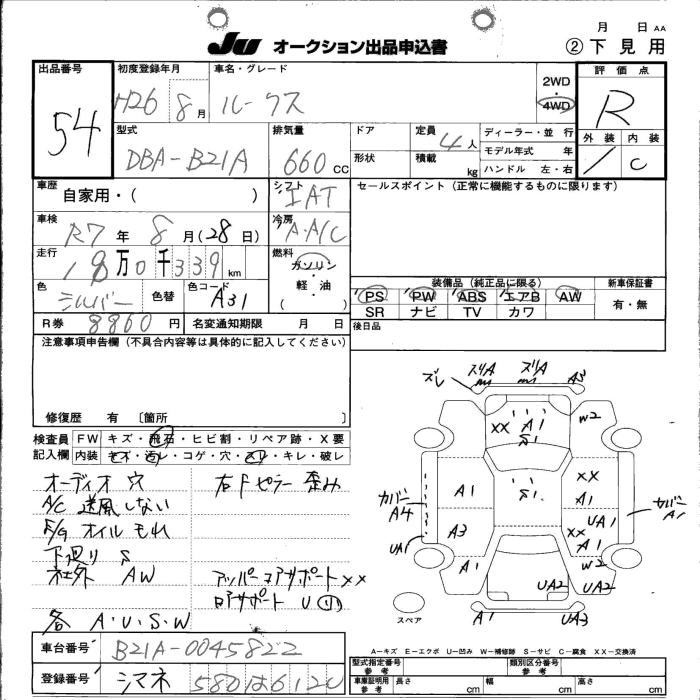 月 日 AA
JU オークション出品申込書 ② 下見用
出品番号 初度登録年月 車名・グレード 2WD ・ 4WD 評価点
54 H26 8月 ルークス R
型式 排気量 ドア 定員 4人 ディーラー・並 行 外装 内装
DBA-B21A 660cc 形状 積載 kg モデル年式 年 ハンドル 左・右 / C
車歴 自家用・( ) シフト IAT セールスポイント (正常に機能するものに限ります)
車検 R7年 8月(28日) 冷房 A・A/C
走行 18万0千339km 燃料 ガソリン 軽・油 ( )
色 シルバー 色替 色コード A31
装備品 (純正品に限る) 新車保証書
PS PW ABS エアB AW 有・無
SR ナビ TV カワ
R券 8860円 名変通知期限 月 日 後日品
注意事項申告欄 (不具合内容等は具体的に記入してください)
修復歴 有 [箇所 ]
検査員 記入欄 FW キズ・飛石・ヒビ割・リペア跡・X要
内装 キズ・汚レ・コゲ・穴・スリ・キレ・破レ
オーディオ穴 右Fピラー歪み
A/C 送風しない
E/G オイルもれ
下廻り S
社外 AW アッパーコアサポートXX
ロアサポート U
各 A・U・S・W
ズレ ズリA ズリA A3
XX A1 S1 W2
カバー A4 A1 S1 XX A1 カバー A1
UA1 A3 XX UA1 A1
A1 W2 UA2 UA2
スペア A1 UA3
A-キズ E-エクボ U-凹み W-補修跡 S-サビ C-腐食 XX-交換済
車台番号 B21A-0045822
登録番号 シマネ 580
型式指定番号 参考 類別区分番号 参考
車庫証明用 参考 長さ cm 幅 cm 高さ cm